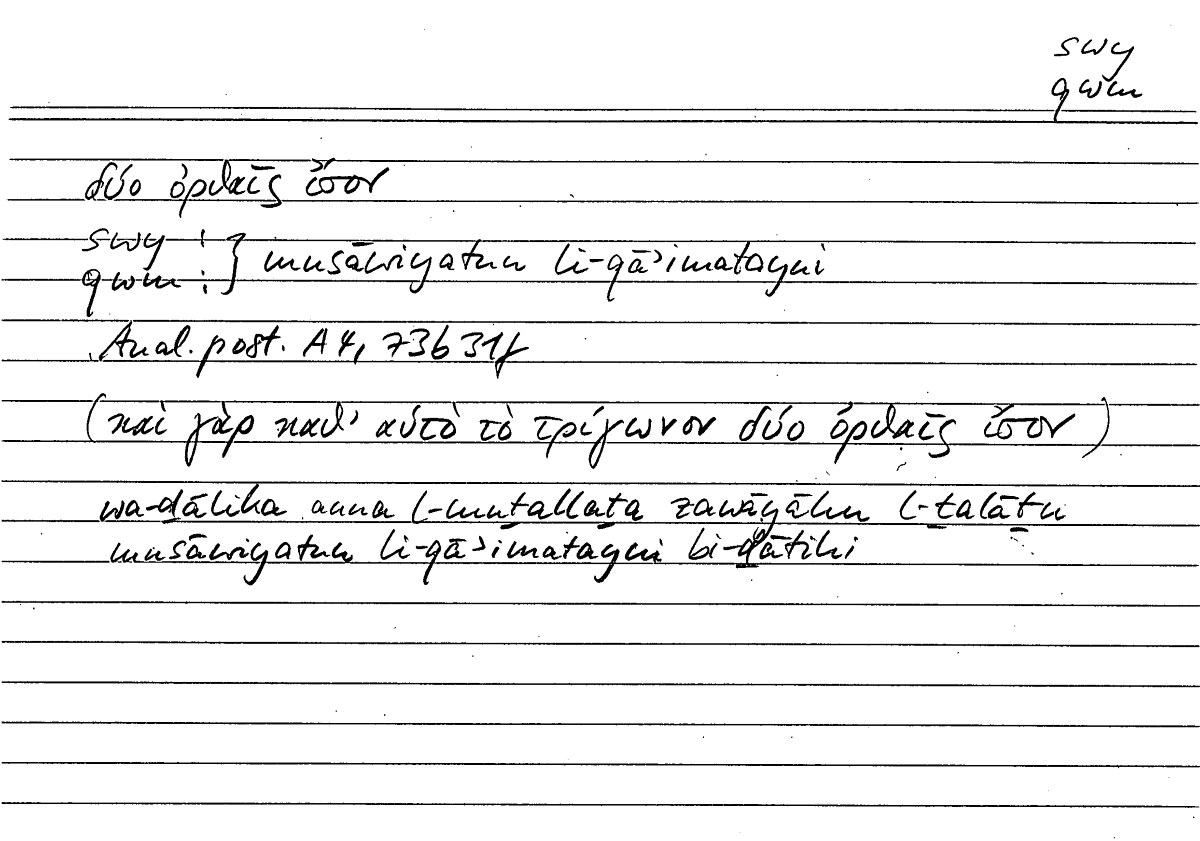 swy
qwm
δύο ὀρθαῖς ἴσον
swy :
qwm : } musāwiyatun li-qāʾimatayni
Anal. post. A 4, 73b 31f
(καὶ γὰρ καθ' αὑτὸ τὸ τρίγωνον δύο ὀρθαῖς ἴσον)
wa-ḏālika anna l-muṯallaṯa zawāyāhu l-ṯalāṯu
musāwiyatun li-qāʾimatayni bi-ḏātihi